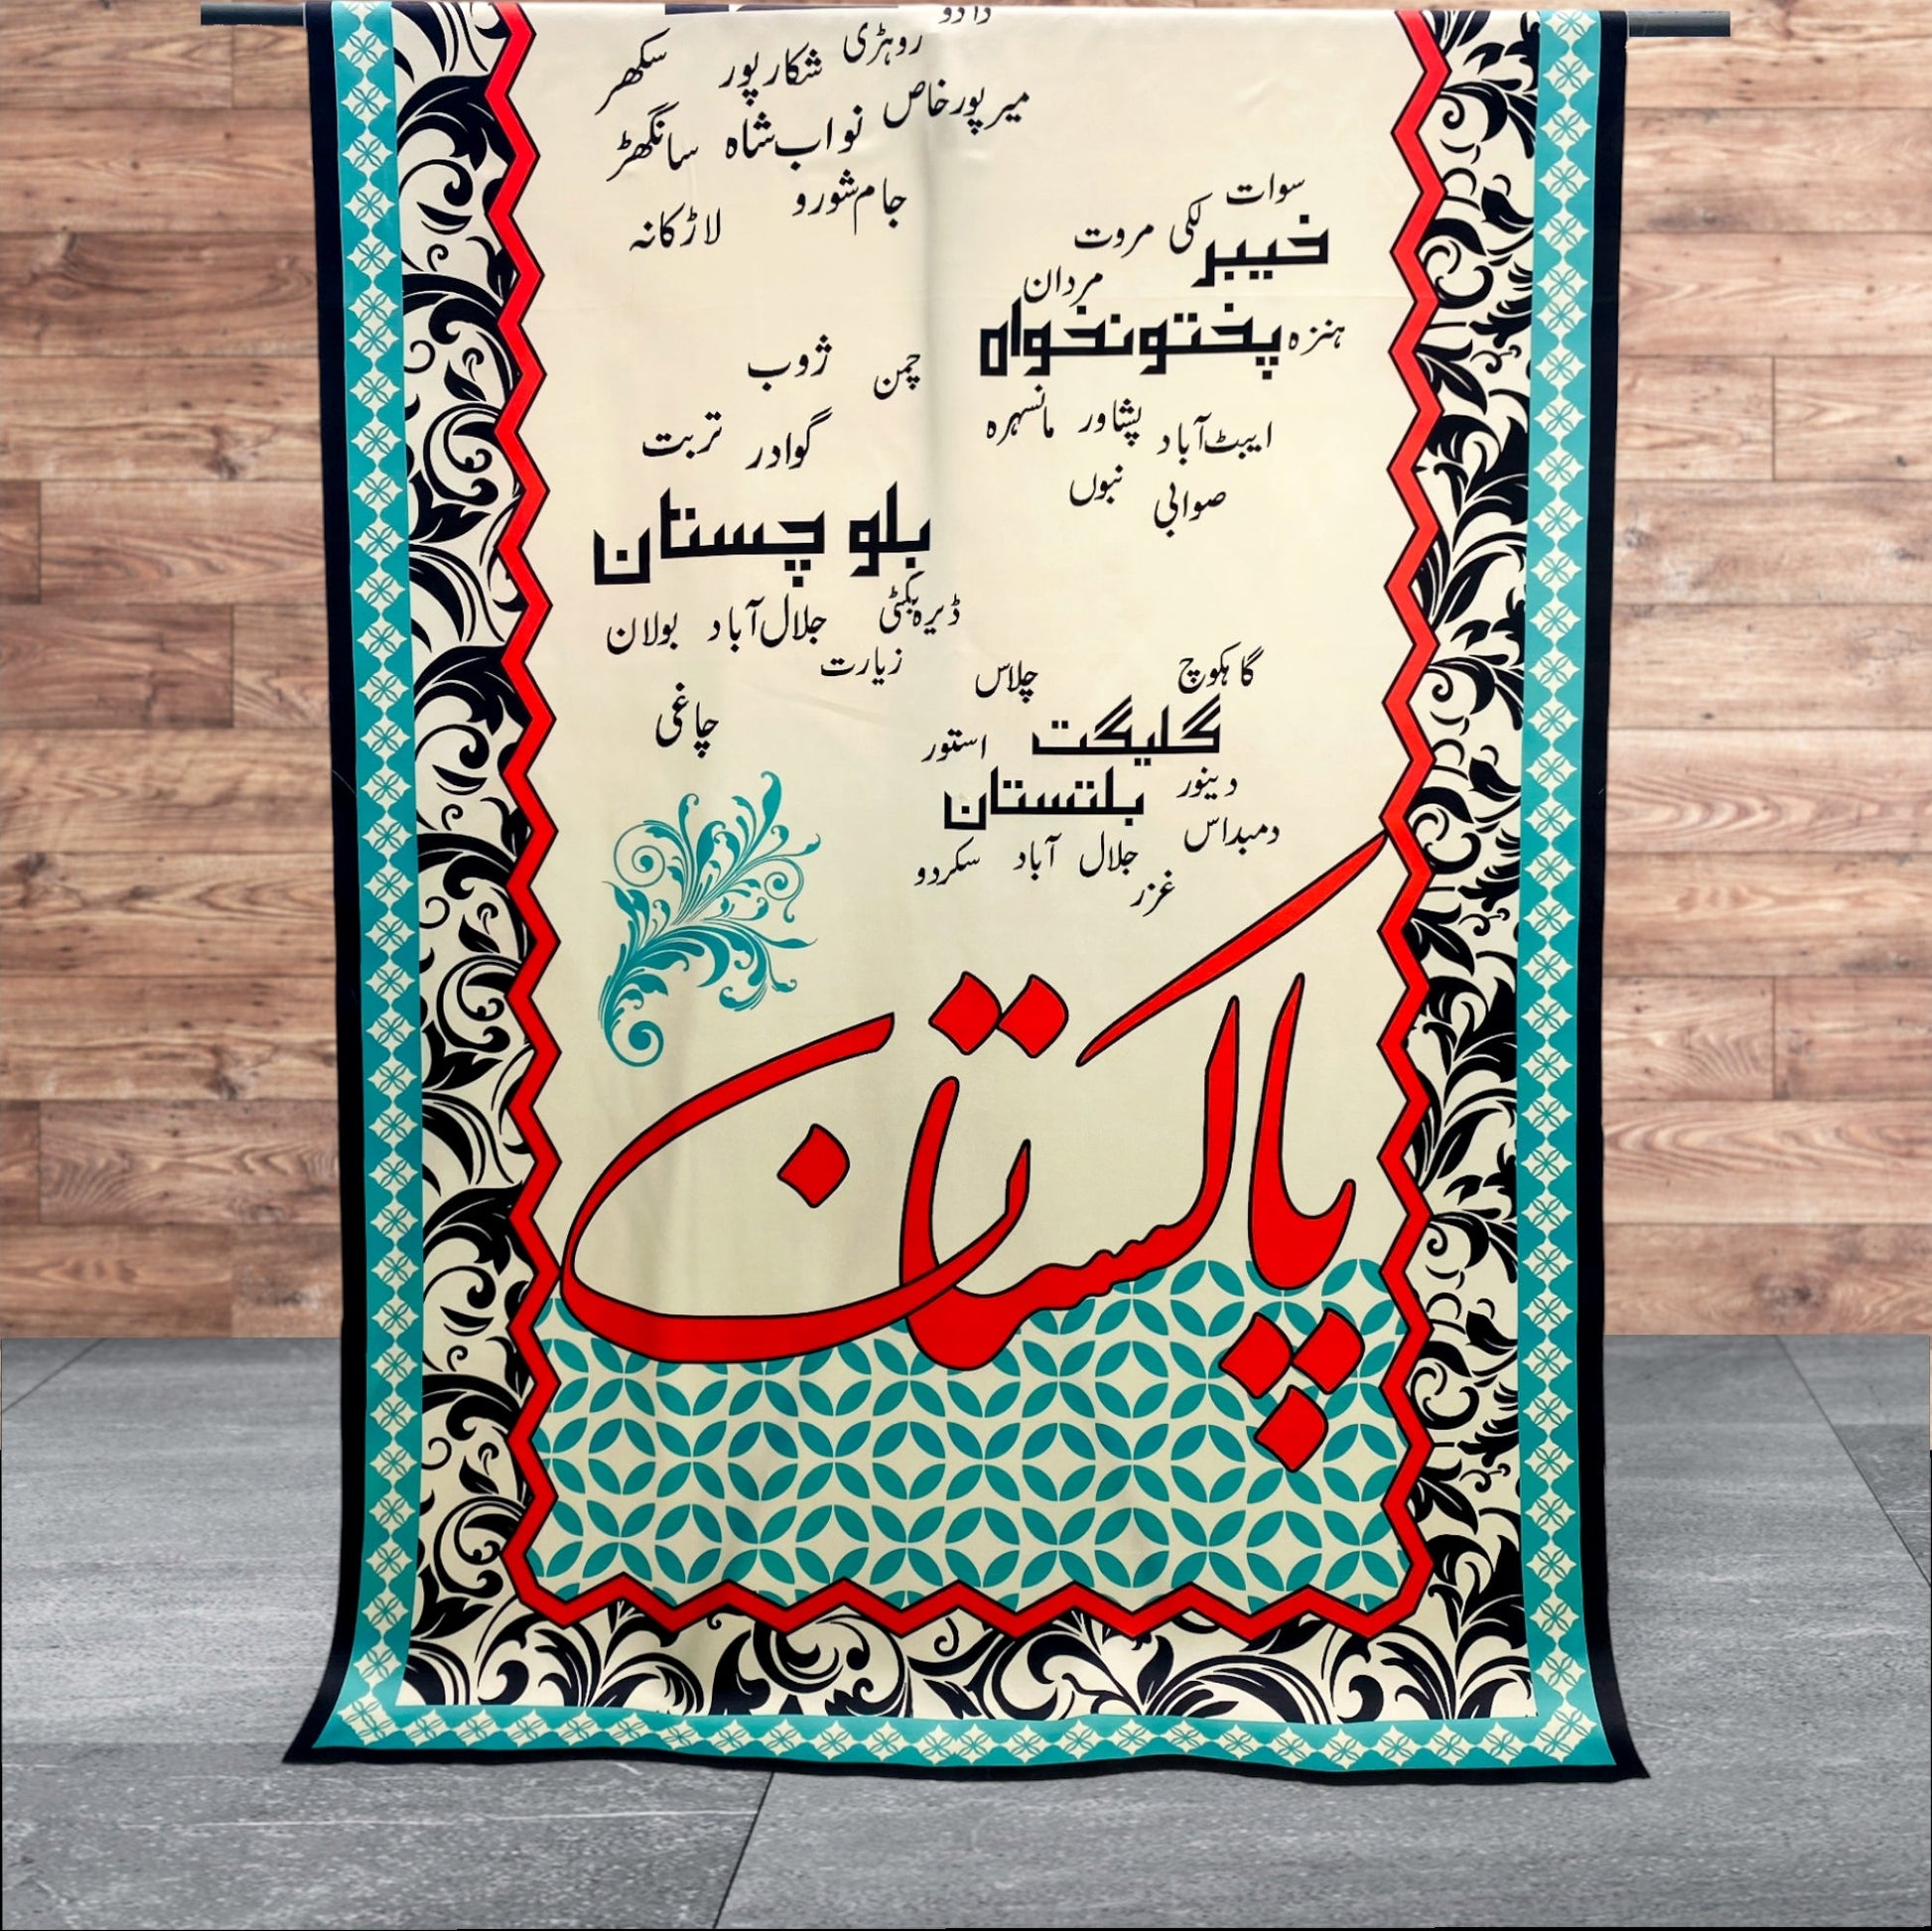 دادو
روہڑی شکارپور سکھر
میرپورخاص نواب‌شاہ سانگھڑ
جام‌شورو لاڑکانہ
سوات
لکی مروت
خیبر
مردان
پختونخواہ ہنزہ
ایبٹ‌آباد پشاور مانسہرہ
صوابی
چمن ژوب
گوادر تربت
بلوچستان
ڈیرہ‌بگٹی جلال‌آباد بولان
زیارت
چاغی
گاہکوچ چلاس
گلیگت استور
دینور
بلتستان
دمبداس
جلال آباد سکردو
غزر
پاکستان